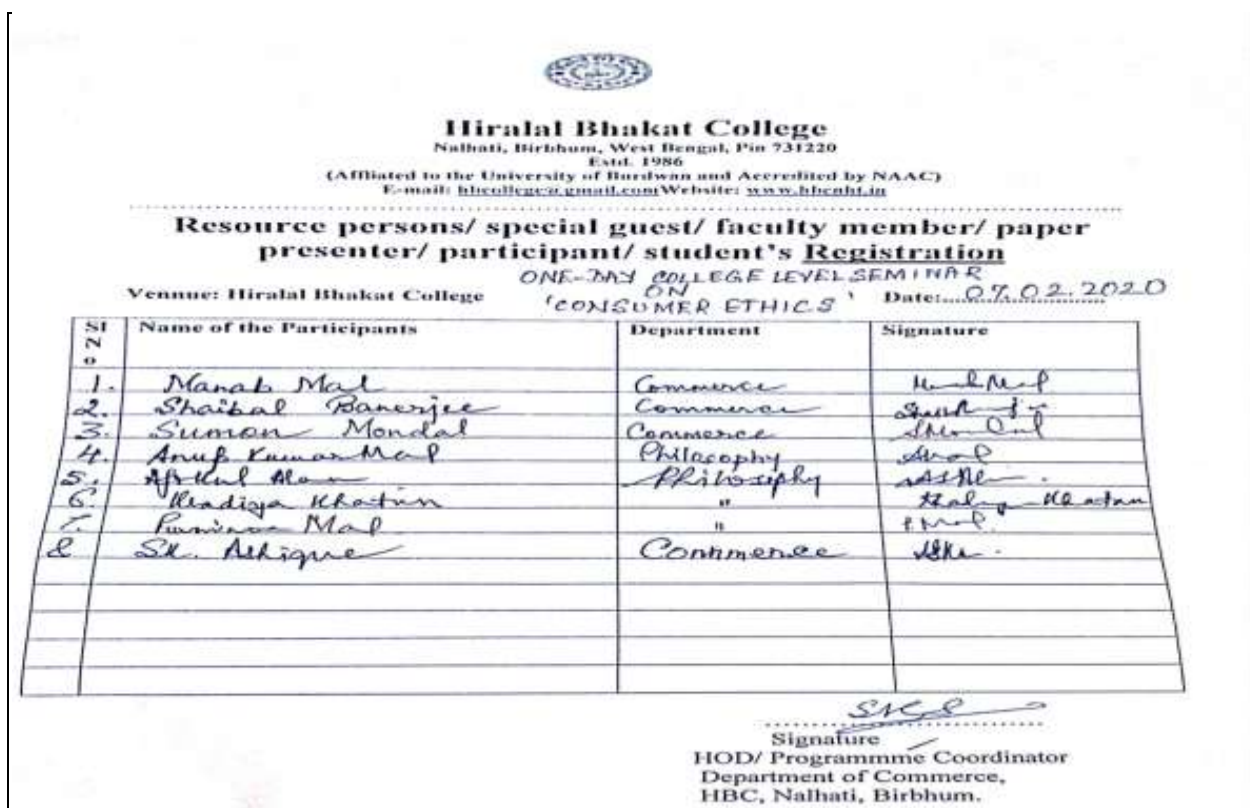 Hiralal Bhakat College
Nalhati, Birbhum, West Bengal, Pin 731220
Estd. 1986
(Affiliated to the University of Burdwan and Accredited by NAAC)
E-mail: hbcollege@gmail.com Website: www.hbcnht.in
Resource persons/ special guest/ faculty member/ paper
presenter/ participant/ student's Registration
ONE-DAY COLLEGE LEVEL SEMINAR
ON
Vennue: Hiralal Bhakat College 'CONSUMER ETHICS' Date: 07.02.2020
Sl No Name of the Participants Department Signature
1. Manab Mal Commerce
2. Shaibal Banerjee Commerce
3. Sumon Mondal Commerce
4. Anup Kumar Mal Philosophy
5. Alam Philosophy
6. Khadiza Khatun " Khatun
7. Mal " P. Mal.
8 Sk. Ashique Commerce
Signature
HOD/ Programmme Coordinator
Department of Commerce,
HBC, Nalhati, Birbhum.